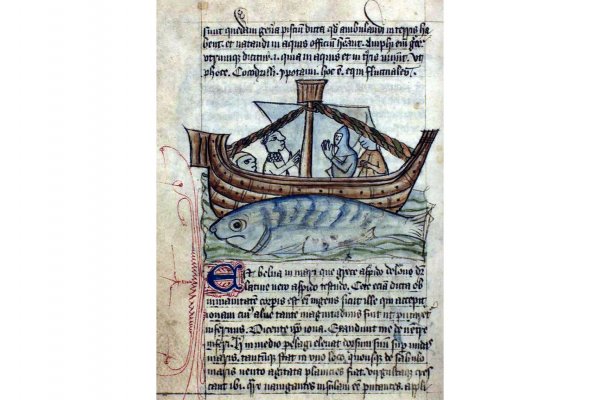 sunt quedam gen̄a pisciū dicta qd̓ ambulandi in terris ha
bent. et natandi in aquis officiū hēant. Amphi em̄ grec̄
utrumque dicitur .i. quia in aquis et in t̄ris uiuūt. vt
phoce. Cocodrilli. ypotami. hoc ē. equi fluctuales.
Est belua in mari que grece aspido delone dr̄
latine vero aspido testudo. Cete eciā dicta ob
inmanitatē corpis est em̄ ingens sicut ille qui accepit
ionam cuiꝰ alue tante magnitudinis fuit ut putaret
infernus. Dicente ip̄o iona. Exaudiuit me de ventre
inferi. H̓ in medio pelagi eleuat dorsum suū sup̄ vndas
maris. tantūque stat in vno loco. quousque de sabulo
maris vento agitata planicies fiat. virgultaque cres
cant ibi. nauigantes insulam eē putantes. appli